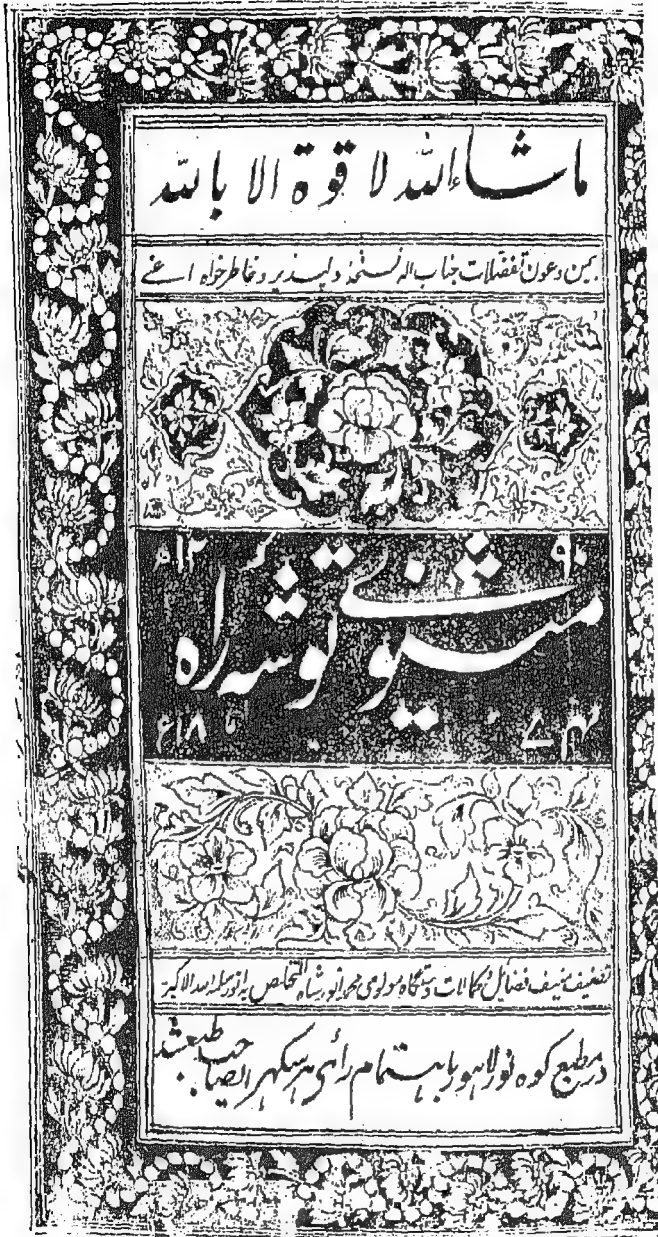 ماشاءالله لا قوة الا بالله
بمین و عون تفضلات جناب اله نسخهٔ دلپذیر و خاطر خواه اعنے
۱۲ ۹۰
مثنوی توشه راه
۱۸
تصنیف منیف فضایل و کمالات دستگاه مولوی محمد انور شاه المتخلص به انور سلمه الله الاکبر
در مطبع کوه نور لاهور باهتمام رائے هرسکهرای صاحب طبع شد